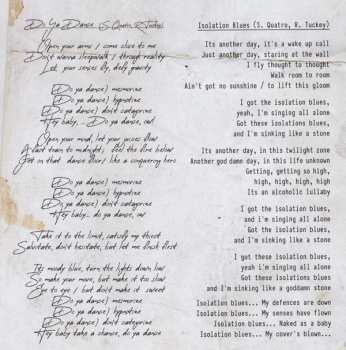 Do Ya Dance (S Quatro, R Tuckey)
Open your arms / come close to me
Don't wanna sleepwalk / through reality
Let your senses fly, defy gravity
Do ya dance) mesmerize
Do ya dance) hypnotize
Do ya dance) don't categorize
Hey baby... Do ya dance, ow
Open your mind, let your juices flow
A last train to midnight, feel the fire below
Get on that dance floor/ like a conquering hero
Do ya dance) mesmerize
Do ya dance) hypnotize
Do ya dance) don't categorize
Hey baby... do ya dance, ow
Take it to the limit, satisfy my thirst
Salivate, don't hesitate, but let me finish first
It's moody blue, turn the lights down low
So make your move, but make it too slow
Eye to eye / but don't make it sweet
Do ya dance) mesmerize
Do ya dance) hypnotize
Do ya dance) don't categorize
Hey baby take a chance, do ya dance
Isolation Blues (S. Quatro, R. Tuckey)
Its another day, it's a wake up call
Just another day, staring at the wall
I fly thought to thought
Walk room to room
Ain't got no sunshine / to lift this gloom
I got the isolation blues,
yeah, i'm singing all alone
Got these isolations blues,
and I'm sinking like a stone
Its another day, in this twilight zone
Another god damn day, in this life unknown
Getting, getting so high,
high, high, high, high
Its an alcoholic lullaby
I got the isolation blues,
and i'm singing all alone
Got the isolation blues,
and I'm sinking like a stone
I got these isolation blues,
yeah i'm singing all alone
Got these isolation blues
and I'm sinking like a goddamn stone
Isolation blues... My defences are down
Isolation blues... My senses have flown
Isolation blues... Naked as a baby
Isolation blues... My cover's blown...